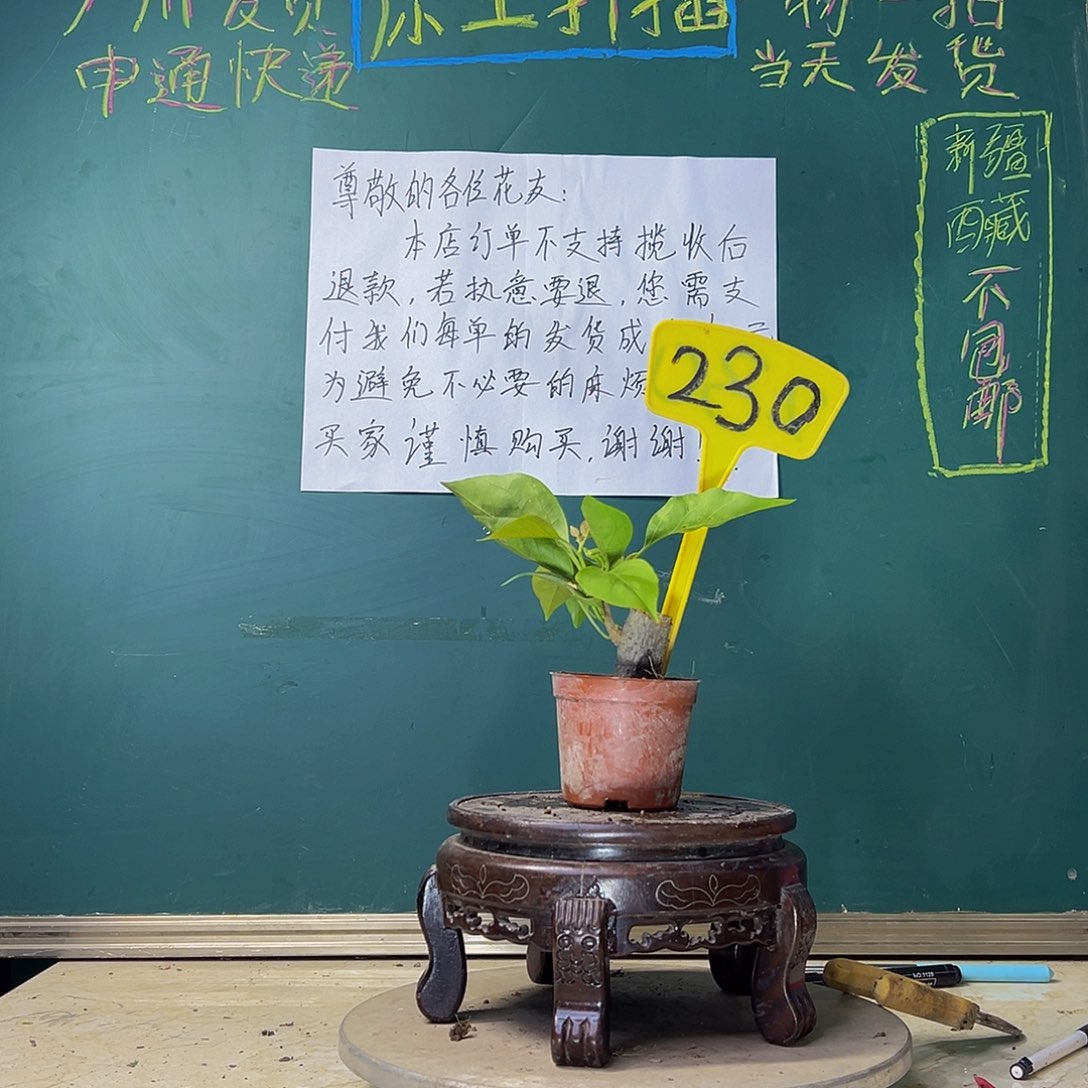 广州发货
原土扦插
物一拍
申通快递
当天发货
尊敬的各位花友:
本店订单不支持揽收后
退款,若执意要退,您需支
付我们每单的发货成
为避免不必要的麻烦
买家谨慎购买,谢谢!
230
新疆
西藏
不包
邮